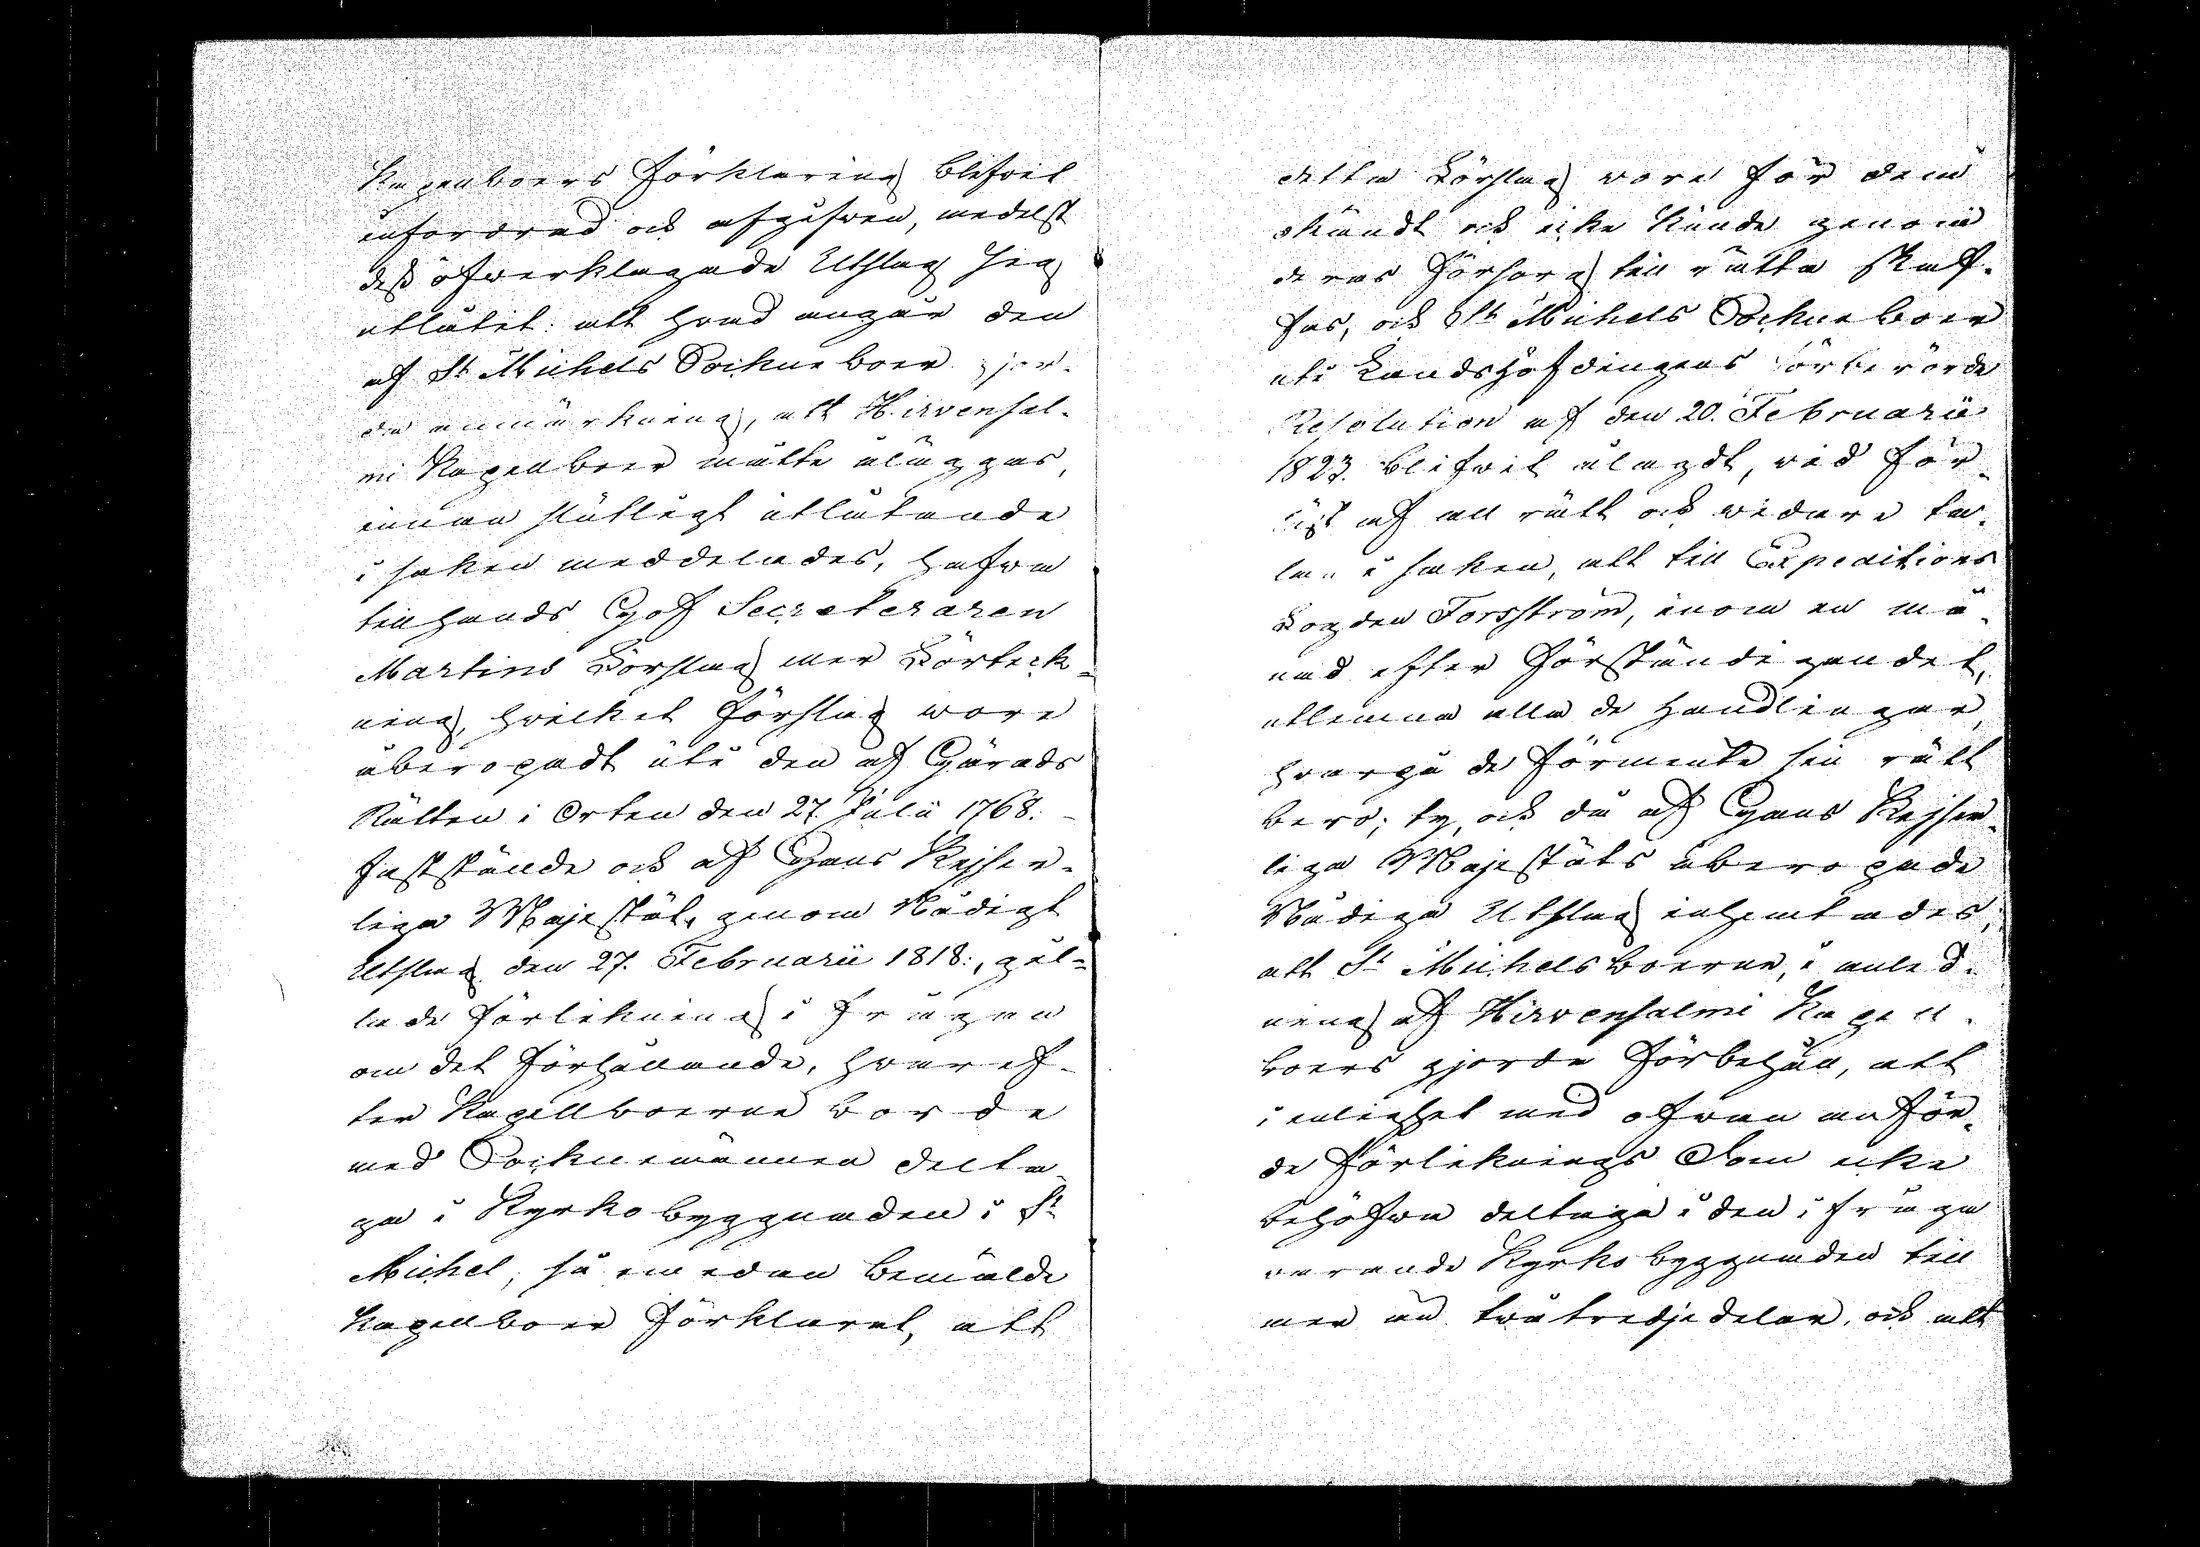 Kapellboers förklaring blifvit
infordrad och afgifven, medelst
dess öfverklagade Utslag sig
utlåtit: att hvad angår den
af S:t Michels Sockneboer gjor-
da anmärkning, att Hirvensal-
mi Kapellboer måtte åläggas,
innan slutligt utlåtande
i saken meddelades, hafva
tillhands Hof Secreteraren
Martins Förslag eller Förteck-
ning, hvilket förslag vore
åberopadt uti den af Härads
Rätten i Orten den 27 Julii 1768.
fastställde och af Hans Kejser-
liga Majestät, genom Nådigt
Utslag den 27. Februarii 1818., gil-
lade förlikning i frågan
om det förhållande, hvaref-
ter Kapellboerne borde
med Socknemännen delta-
ga i Kyrkobyggnaden i S:t
Michel; så emedan bemälde
Kapellboer förklarat, att
detta Förslag vore för dem
okändt och icke kunde genom
deras försorg till rätta skaf-
fas, och S:t Michels Sockneboer
uti Landshöfdingens förberörde
Resolution af den 20. Februarii
1823. blifvit ålagdt, vid för-
lust af all rätt och vidare ta-
lan i saken, att till Expeditions
Fogden Forsström, inom en må-
nad efter förständigandet,
utlemna alla de handlingar,
hvarpå de förmente sin rätt
bero; ty, och då af Hans Kejser-
liga Majestäts åberopade
Nådiga Utslag inhemtades,
att S:t Michelsboerne, i anled-
ning af Hirvensalmi Kapell-
boers gjorde förbehåll, att
i enlighet med ofvan anför-
de förliknings Dom icke
behöfva deltaga i den i fråga
varande Kyrkobyggnaden till
mer än två tredjedelar, och att